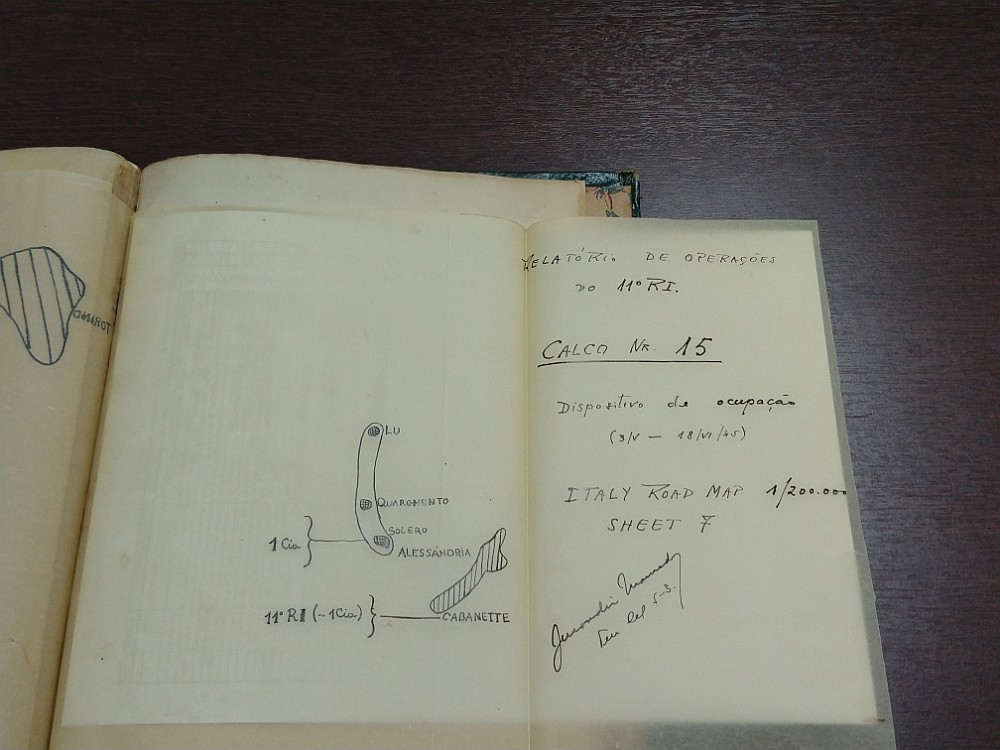 LU
QUARGNENTO
SOLERO
1 Cia
ALESSÁNDRIA
11º RI (-1Cia)
CABANETTE
RELATÓRIO DE OPERAÇÕES
DO 11º RI.
CALCO NR. 15
Dispositivo de ocupação
(3/V — 18/VI/45)
ITALY ROAD MAP 1/200.000
SHEET 7